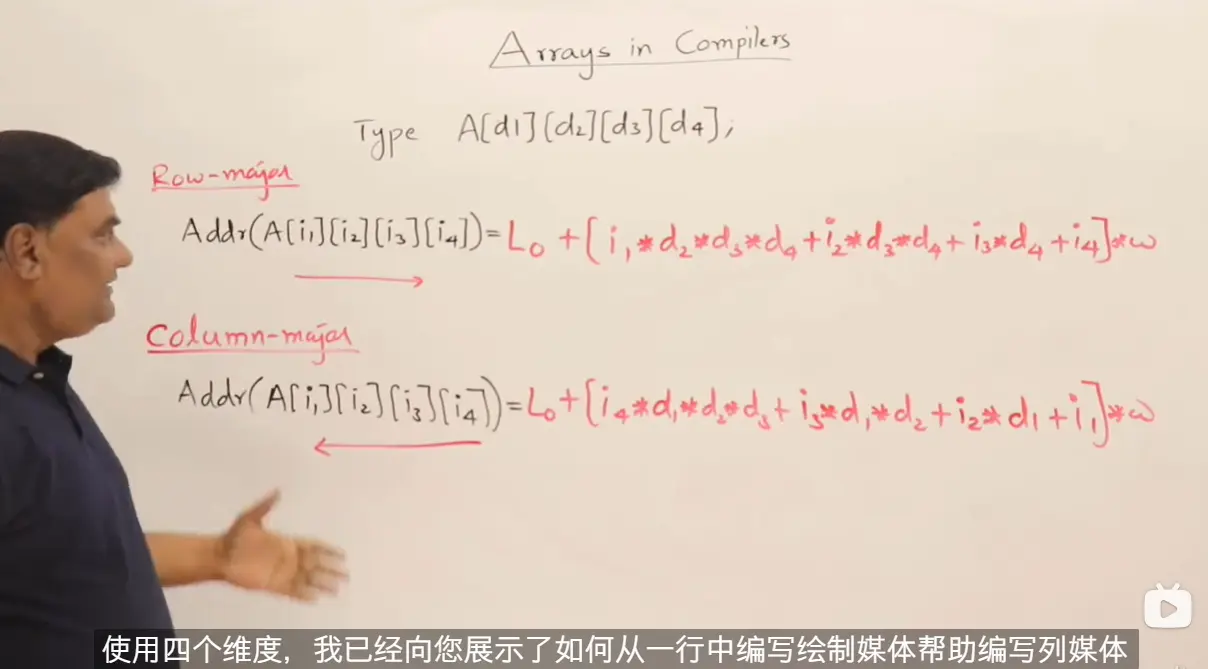 Arrays in Compilers
Type A[d1][d2][d3][d4];
Row-major
Addr(A[i1][i2][i3][i4])=L0+[i1*d2*d3*d4+i2*d3*d4+i3*d4+i4]*w
Column-major
Addr(A[i1][i2][i3][i4])=L0+[i4*d1*d2*d3+i3*d1*d2+i2*d1+i1]*w
使用四个维度，我已经向您展示了如何从一行中编写绘制媒体帮助编写列媒体